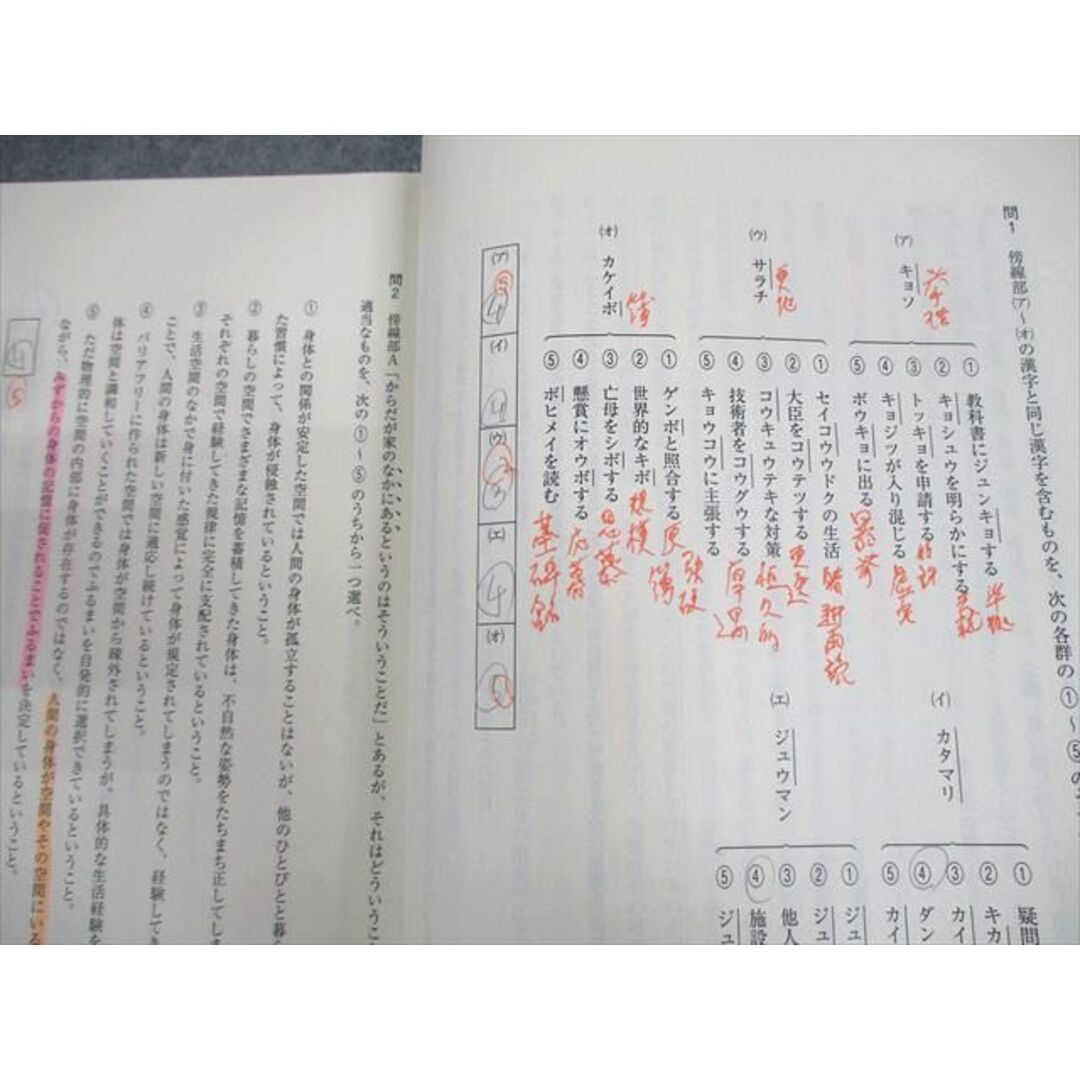 問1 傍線部(ア)〜(オ)の漢字と同じ漢字を含むものを、次の各群の①〜⑤の
(ア) キョソ
挙措
① 教科書にジュンキョする
準拠
② キョシュウを明らかにする
③ トッキョを申請する
④ キョジツが入り混じる
⑤ ボウキョに出る
暴挙
(イ) カタマリ
① 疑問
② キカ
③ カイ
④ ダン
⑤ カイ
(ウ) サラチ
更地
① セイコウウドクの生活
晴耕雨読
② 大臣をコウテツする
更迭
③ コウキュウテキな対策
恒久的
④ 技術者をコウグウする
厚遇
⑤ キョウコウに主張する
強硬
(エ) ジュウマン
① ジュ
② ジュ
③ 他人
④ 施設
⑤ ジュ
(オ) カケイボ
簿
① ゲンボと照合する
原簿
② 世界的なキボ
規模
③ 亡母をシボする
思慕
④ 懸賞にオウボする
応募
⑤ ボヒメイを読む
墓碑銘
(ア) ⑤ 4
(イ) 4
(ウ) 2 3
(エ) 4
(オ) 5
問2 傍線部A「からだが家のなかにあるというのはそういうことだ」とあるが、それはどういうこ
適当なものを、次の①〜⑤のうちから一つ選べ。
① 身体との関係が安定した空間では人間の身体が孤立することはないが、他のひとびとと暮ら
た習慣によって、身体が侵蝕されているということ。
② 暮らしの空間でさまざまな記憶を蓄積してきた身体は、不自然な姿勢をたちまち正してしま
それぞれの空間で経験してきた規律に完全に支配されているということ。
③ 生活空間のなかで身に付いた感覚によって身体が規定されてしまうのではなく、経験してき
ことで、人間の身体は新しい空間に適応し続けているということ。
④ バリアフリーに作られた空間では身体が空間から疎外されてしまうが、具体的な生活経験を
体は空間と調和していくことができるのでふるまいを自発的に選択できているということ。
⑤ ただ物理的に空間の内部に身体が存在するのではなく、人間の身体が空間やその空間にいる
ながら、みずからの身体の記憶に促されることでふるまいを決定しているということ。
4 ⑤